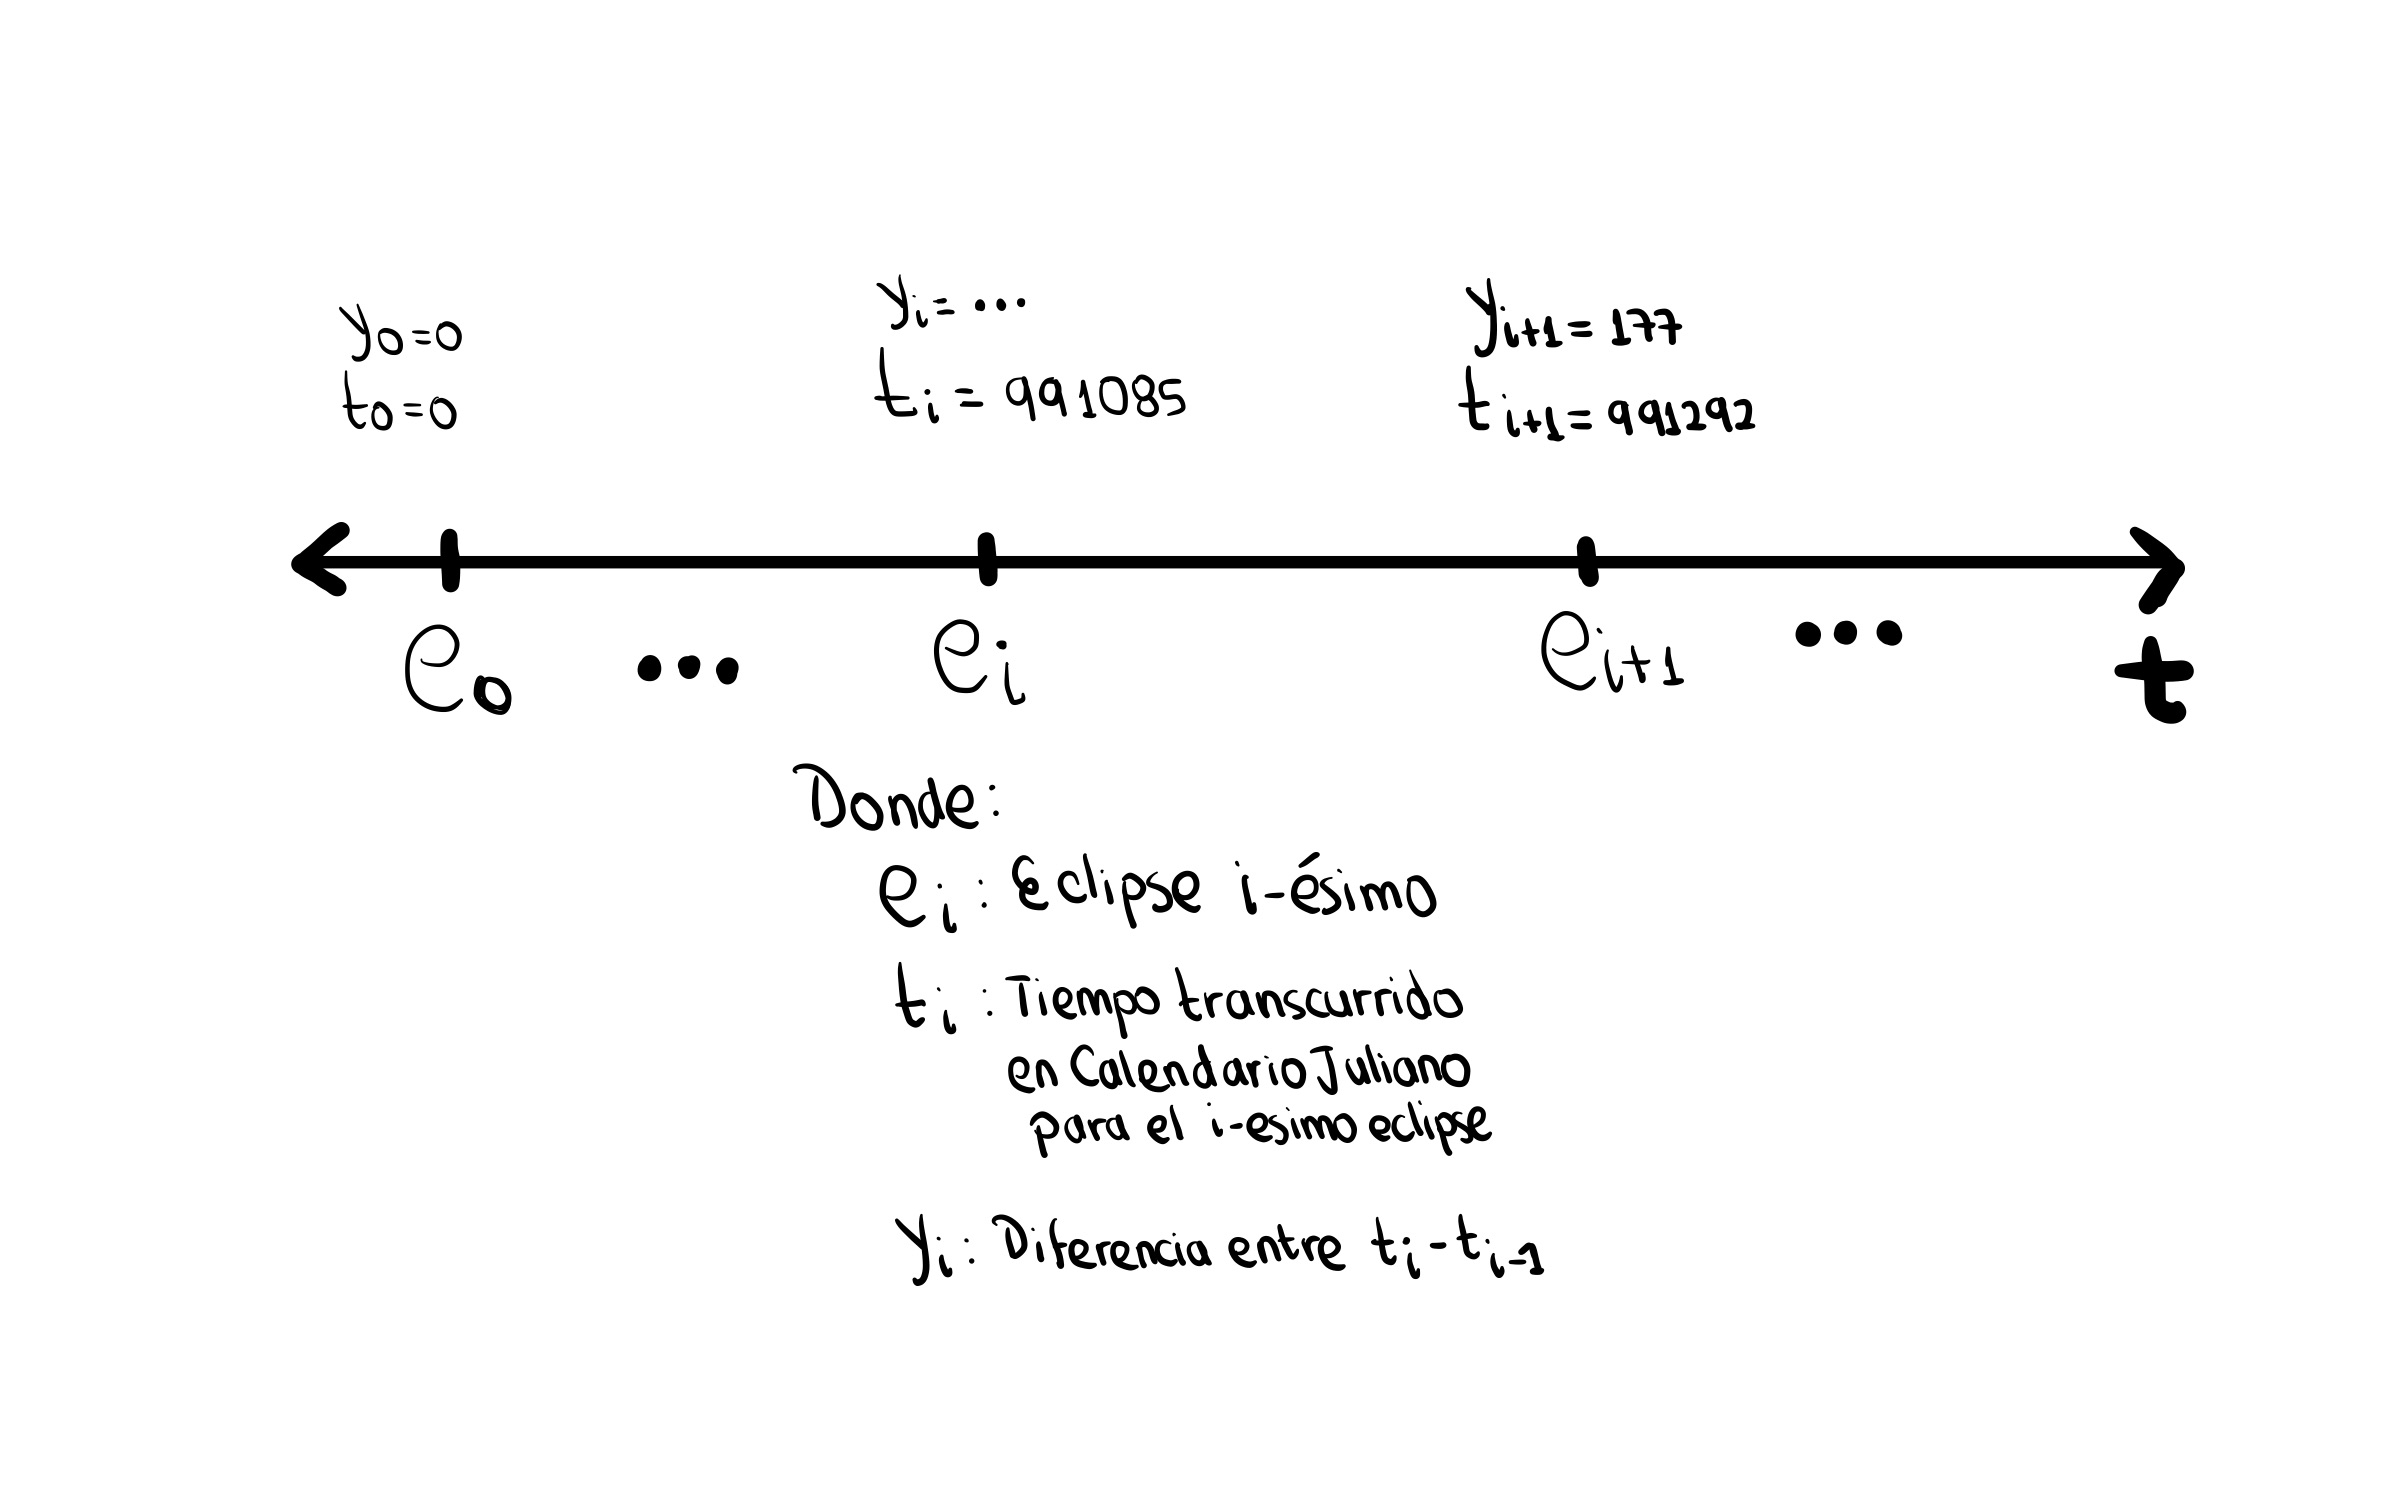 y₀=0
t₀=0
yᵢ= ...
tᵢ = 991085
yᵢ₊₁= 177
tᵢ₊₁= 991292
e₀ ... eᵢ eᵢ₊₁ ...
t
Donde:
eᵢ : Eclipse i-ésimo
tᵢ : Tiempo transcurrido
en Calendario Juliano
para el i-esimo eclipse
yᵢ : Diferencia entre tᵢ - tᵢ₋₁